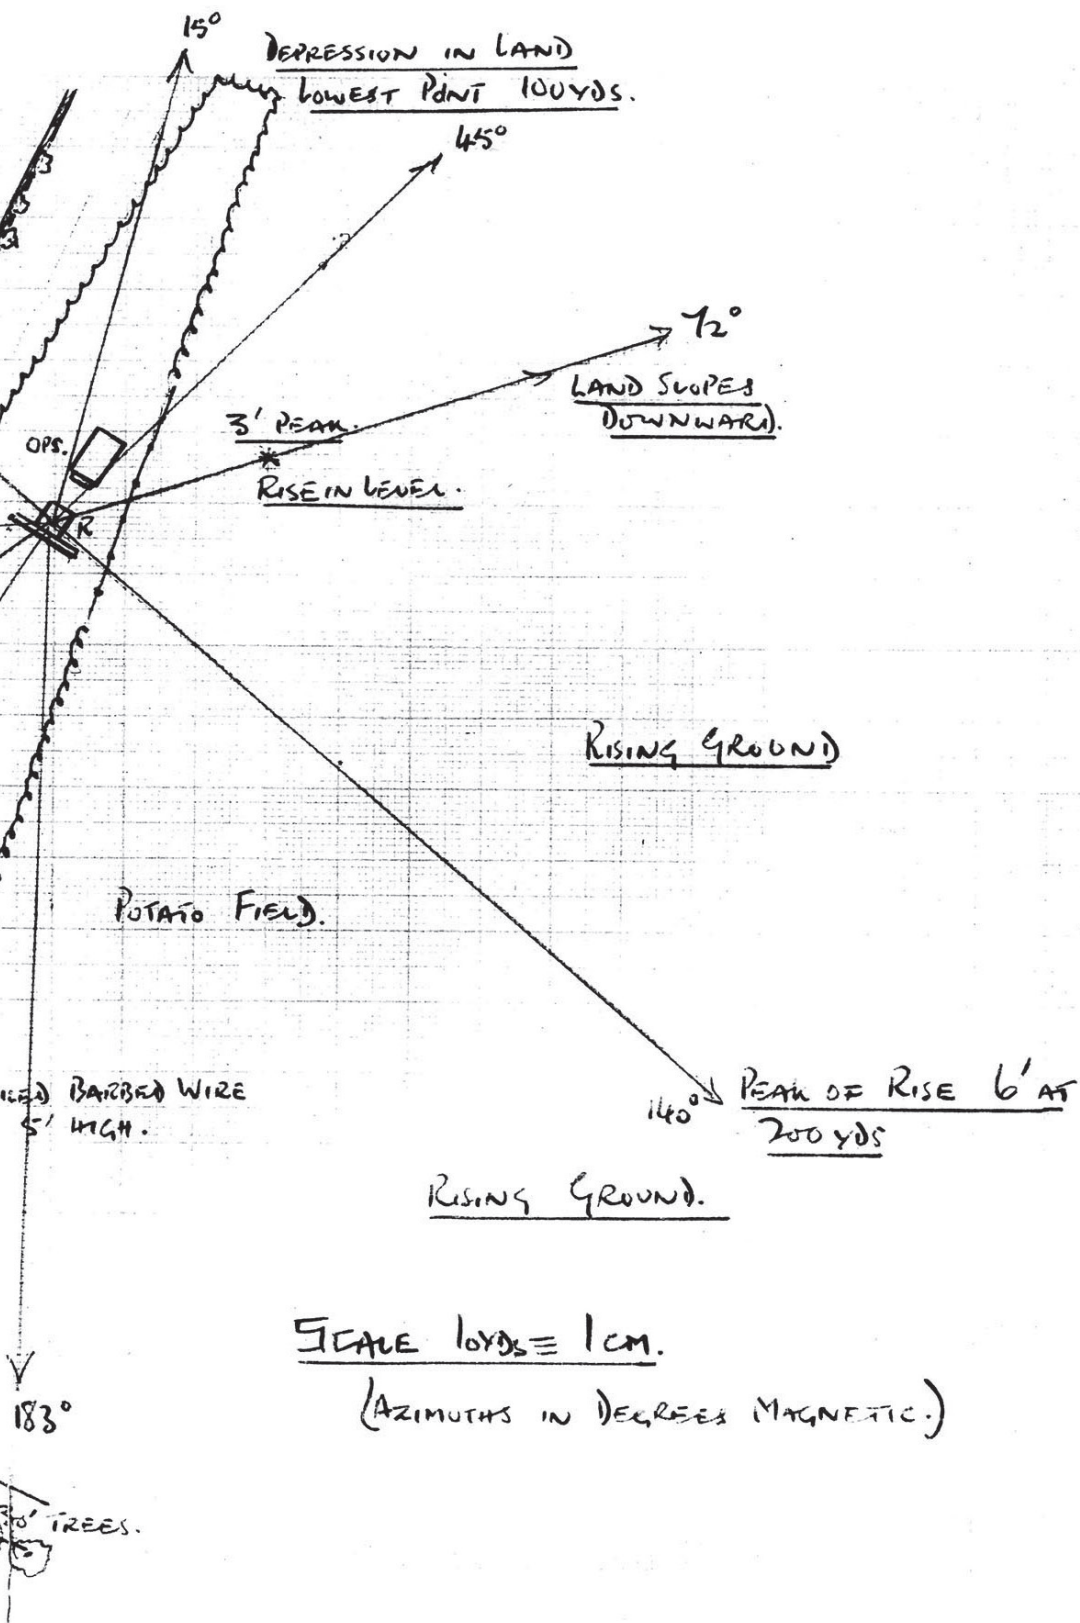 15°
DEPRESSION IN LAND
LOWEST POINT 100YDS.
45°
72°
LAND SLOPES
DOWNWARD.
3' PEAK.
OPS.
RISE IN LEVEL.
R
RISING GROUND
POTATO FIELD.
BARBED WIRE
5' HIGH.
140°
PEAK OF RISE 6' AT
200 YDS
RISING GROUND.
SCALE 10YDS ≡ 1CM.
(AZIMUTHS IN DEGREES MAGNETIC.)
183°
TREES.